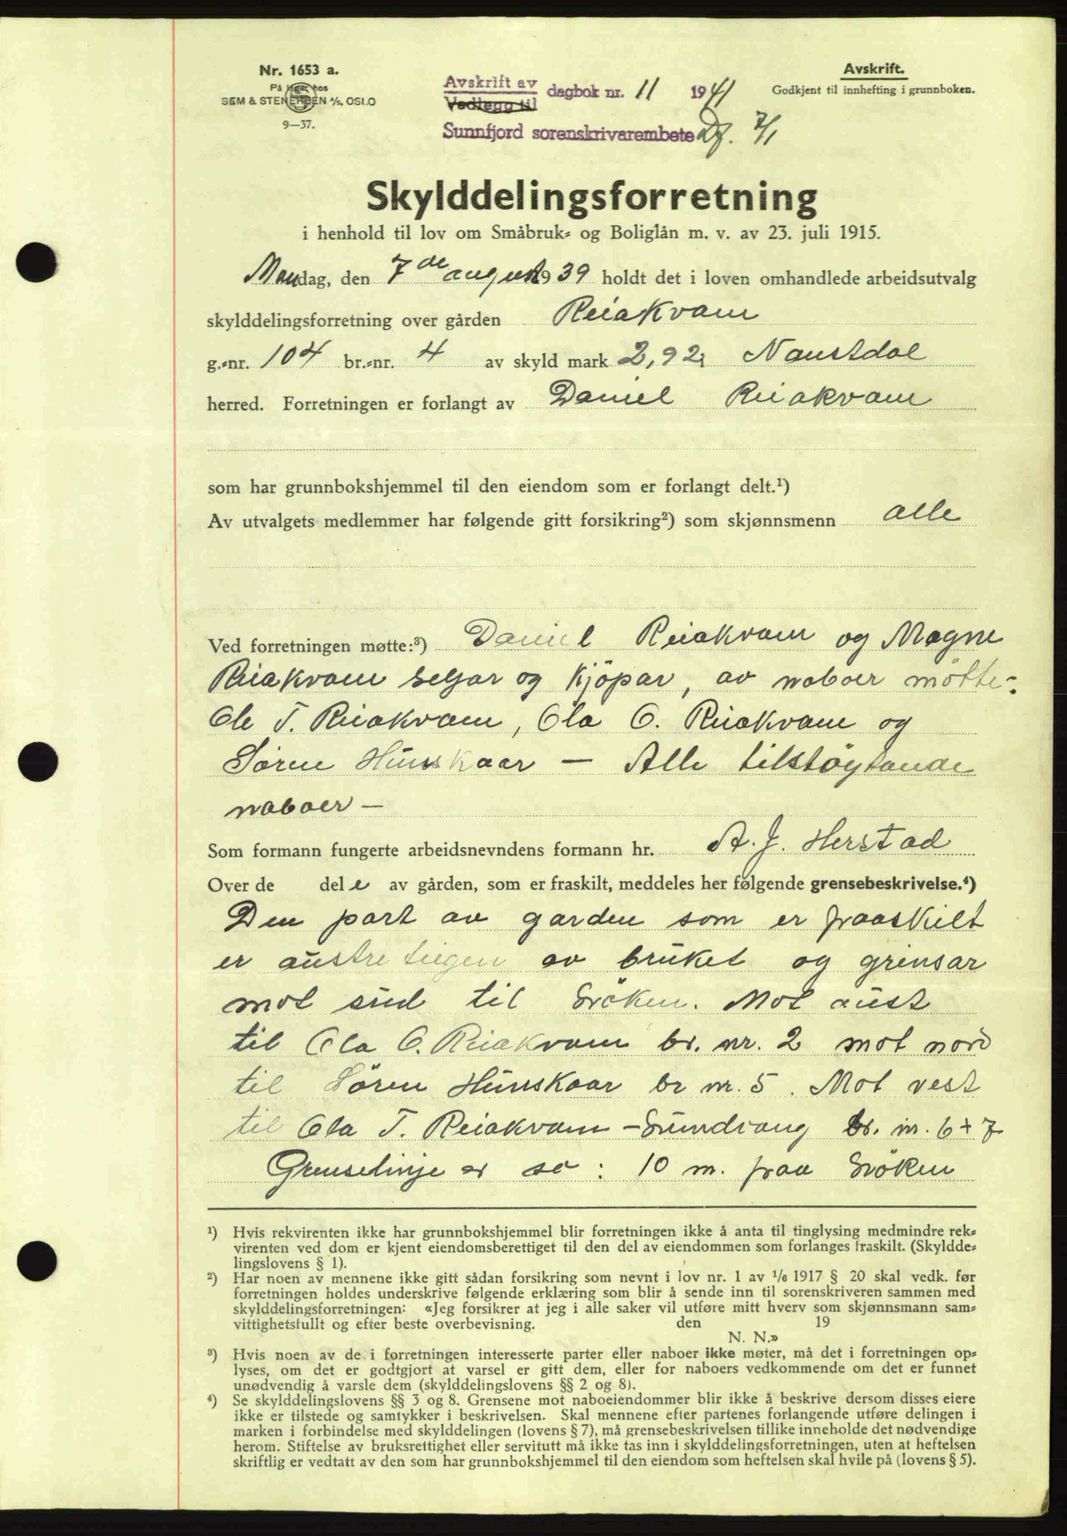 Nr. 1653 a.
På lager hos
SEM & STENERSEN A/S, OSLO
9—37.
Avskrift av
Vedlegg til
dagbok nr. 11 1941
Sunnfjord sorenskrivarembete 7/1
Avskrift.
Godkjent til innhefting i grunnboken.
Skylddelingsforretning
i henhold til lov om Småbruk- og Boliglån m. v. av 23. juli 1915.
Mandag, den 7de august 1939 holdt det i loven omhandlede arbeidsutvalg
skylddelingsforretning over gården Reiakvam
g.-nr. 104 br.-nr. 4 av skyld mark 2,92 i Naustdal
herred. Forretningen er forlangt av Daniel Reiakvam
som har grunnbokshjemmel til den eiendom som er forlangt delt.¹)
Av utvalgets medlemmer har følgende gitt forsikring²) som skjønnsmenn alle
Ved forretningen møtte:³) Daniel Reiakvam og Magne
Reiakvam seljar og kjöpar, av naboer mötte:
Ole T. Reiakvam, Ola O. Reiakvam og
Sören Hunskaar — Alle tilstöytande
naboer —
Som formann fungerte arbeidsnevndens formann hr. A. J. Herstad
Over de del e av gården, som er fraskilt, meddeles her følgende grensebeskrivelse.⁴)
Den part av garden som er fraaskilt
er austre teigen av bruket og grensar
mot sud til Gröken. Mot aust
til Ola O. Reiakvam br. nr. 2 mot nord
til Sören Hunskaar br nr. 5. Mot vest
til Ola T. Reiakvam — Grundvang br. nr. 6 + 7
Grenselinje er sa: 10 m. fraa Gröken
¹) Hvis rekvirenten ikke har grunnbokshjemmel blir forretningen ikke å anta til tinglysing medmindre rek-
virenten ved dom er kjent eiendomsberettiget til den del av eiendommen som forlanges fraskilt. (Skyldde-
lingslovens § 1).
²) Har noen av mennene ikke gitt sådan forsikring som nevnt i lov nr. 1 av 1/6 1917 § 20 skal vedk. før
forretningen holdes underskrive følgende erklæring som blir å sende inn til sorenskriveren sammen med
skylddelingsforretningen: «Jeg forsikrer at jeg i alle saker vil utføre mitt hverv som skjønnsmann sam-
vittighetsfullt og efter beste overbevisning. den 19
N. N.»
³) Hvis noen av de i forretningen interesserte parter eller naboer ikke møter, må det i forretningen op-
lyses, om det er godtgjort at varsel er gitt dem, eller for naboers vedkommende om det er funnet
unødvendig å varsle dem (skylddelingslovens §§ 2 og 8).
⁴) Se skylddelingslovens §§ 3 og 8. Grensene mot naboeiendommer blir ikke å beskrive dersom disses eiere
ikke er tilstede og samtykker i beskrivelsen. Skal mennene efter partenes forlangende utføre delingen i
marken i forbindelse med skylddelingen (lovens § 7), må grensebeskrivelsen tillike inneholde det nødvendige
herom. Stiftelse av bruksrettighet eller servitutt må ikke tas inn i skylddelingsforretningen, uten at heftelsen
skriftlig er vedtatt av den som har grunnbokshjemmel til den eiendom som heftelsen skal hvile på (lovens § 5).